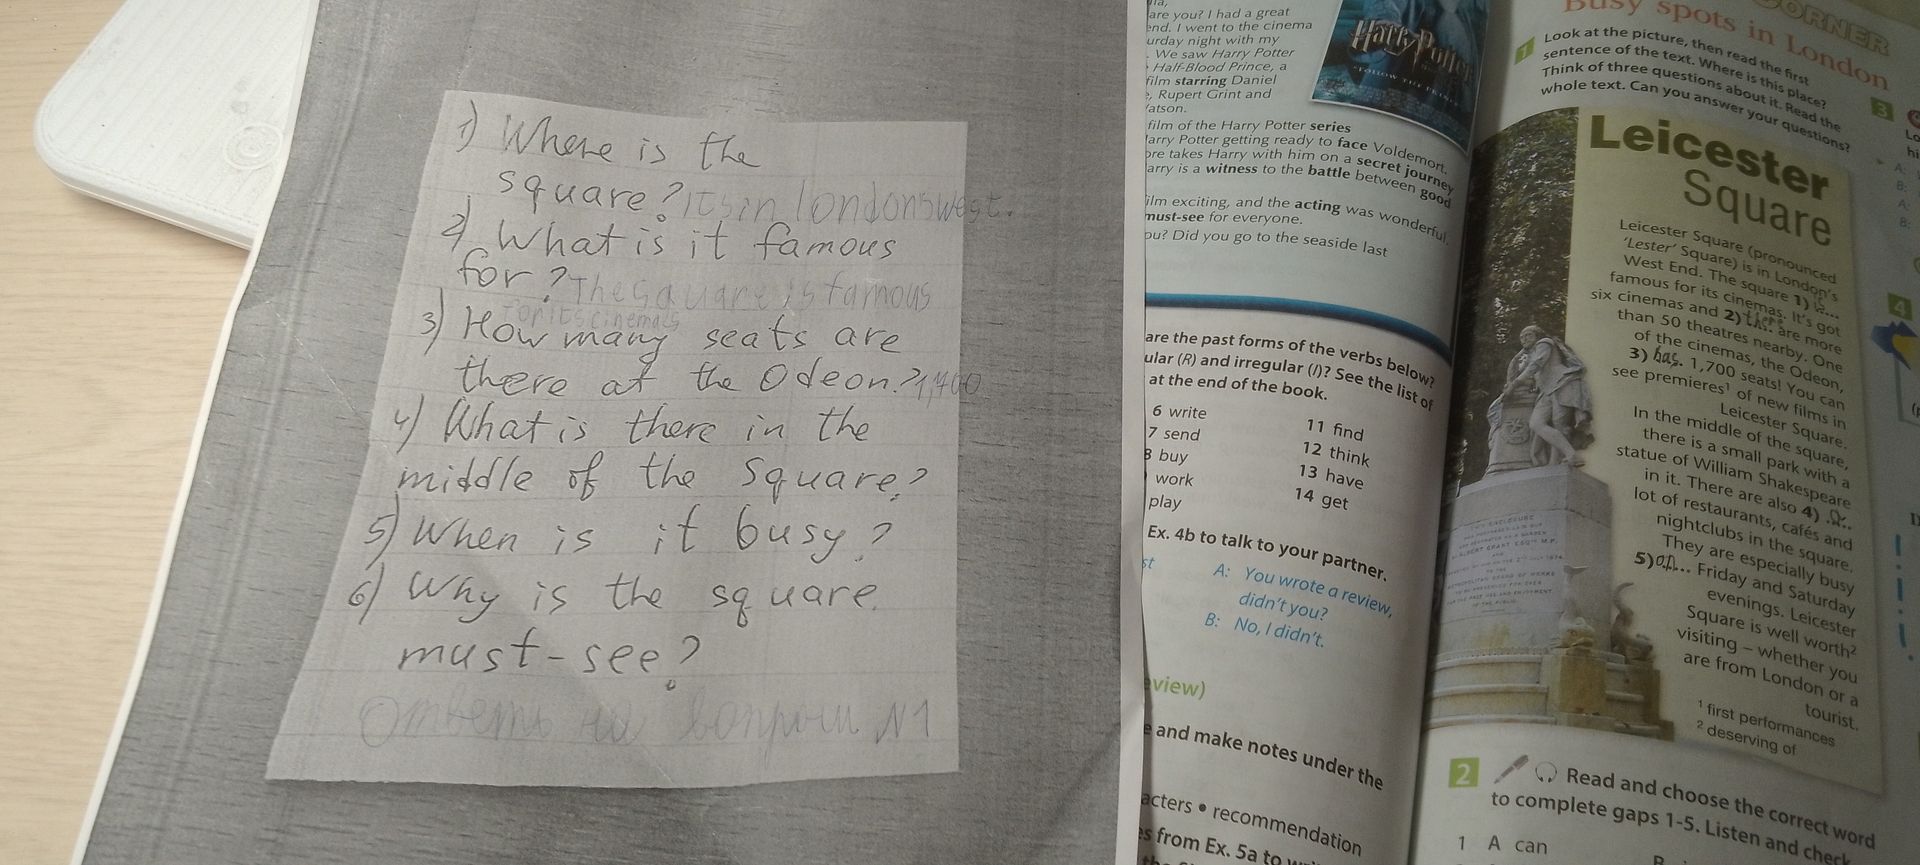 1) Where is the
square? Itsin londonswest.
2) What is it famous
for? The square is famous
foritscinemas
3) How many seats are
there at the Odeon? 1,700
4) What is there in the
middle of the square?
5) When is it busy?
6) Why is the square
must-see?
Ответь на вопросы N1
are you? I had a great
end. I went to the cinema
urday night with my
. We saw Harry Potter
Half-Blood Prince, a
film starring Daniel
e, Rupert Grint and
atson.
Harry Potter
film of the Harry Potter series
arry Potter getting ready to face Voldemort.
ore takes Harry with him on a secret journey
arry is a witness to the battle between good
ilm exciting, and the acting was wonderful.
must-see for everyone.
ou? Did you go to the seaside last
are the past forms of the verbs below?
ular (R) and irregular (I)? See the list of
at the end of the book.
6 write
7 send
8 buy
work
play
11 find
12 think
13 have
14 get
Ex. 4b to talk to your partner.
st
A: You wrote a review,
didn't you?
B: No, I didn't.
view)
e and make notes under the
acters • recommendation
es from Ex. 5a to
CORNER
Busy spots in London
1 Look at the picture, then read the first
sentence of the text. Where is this place?
Think of three questions about it. Read the
whole text. Can you answer your questions?
Leicester
Square
Leicester Square (pronounced
'Lester' Square) is in London's
West End. The square 1) is...
famous for its cinemas. It's got
six cinemas and 2) there are more
than 50 theatres nearby. One
of the cinemas, the Odeon,
3) has. 1,700 seats! You can
see premieres¹ of new films in
Leicester Square.
In the middle of the square,
there is a small park with a
statue of William Shakespeare
in it. There are also 4) .a..
lot of restaurants, cafés and
nightclubs in the square.
They are especially busy
5) on... Friday and Saturday
evenings. Leicester
Square is well worth²
visiting – whether you
are from London or a
tourist.
¹ first performances
² deserving of
2 Read and choose the correct word
to complete gaps 1-5. Listen and check
1 A can
B
3
Lo
hi
A:
B:
A:
B:
4